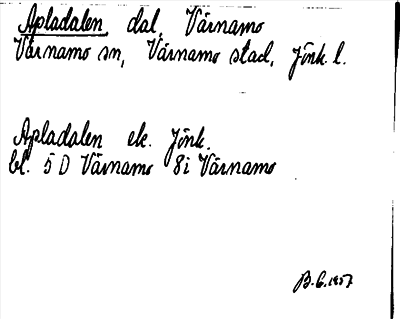 Apladalen, dal, Värnamo
Värnamo sn, Värnamo stad, Jönk. l.
Apladalen ek. Jönk.
bl. 5 D Värnamo 8i Värnamo
B. G. 1957